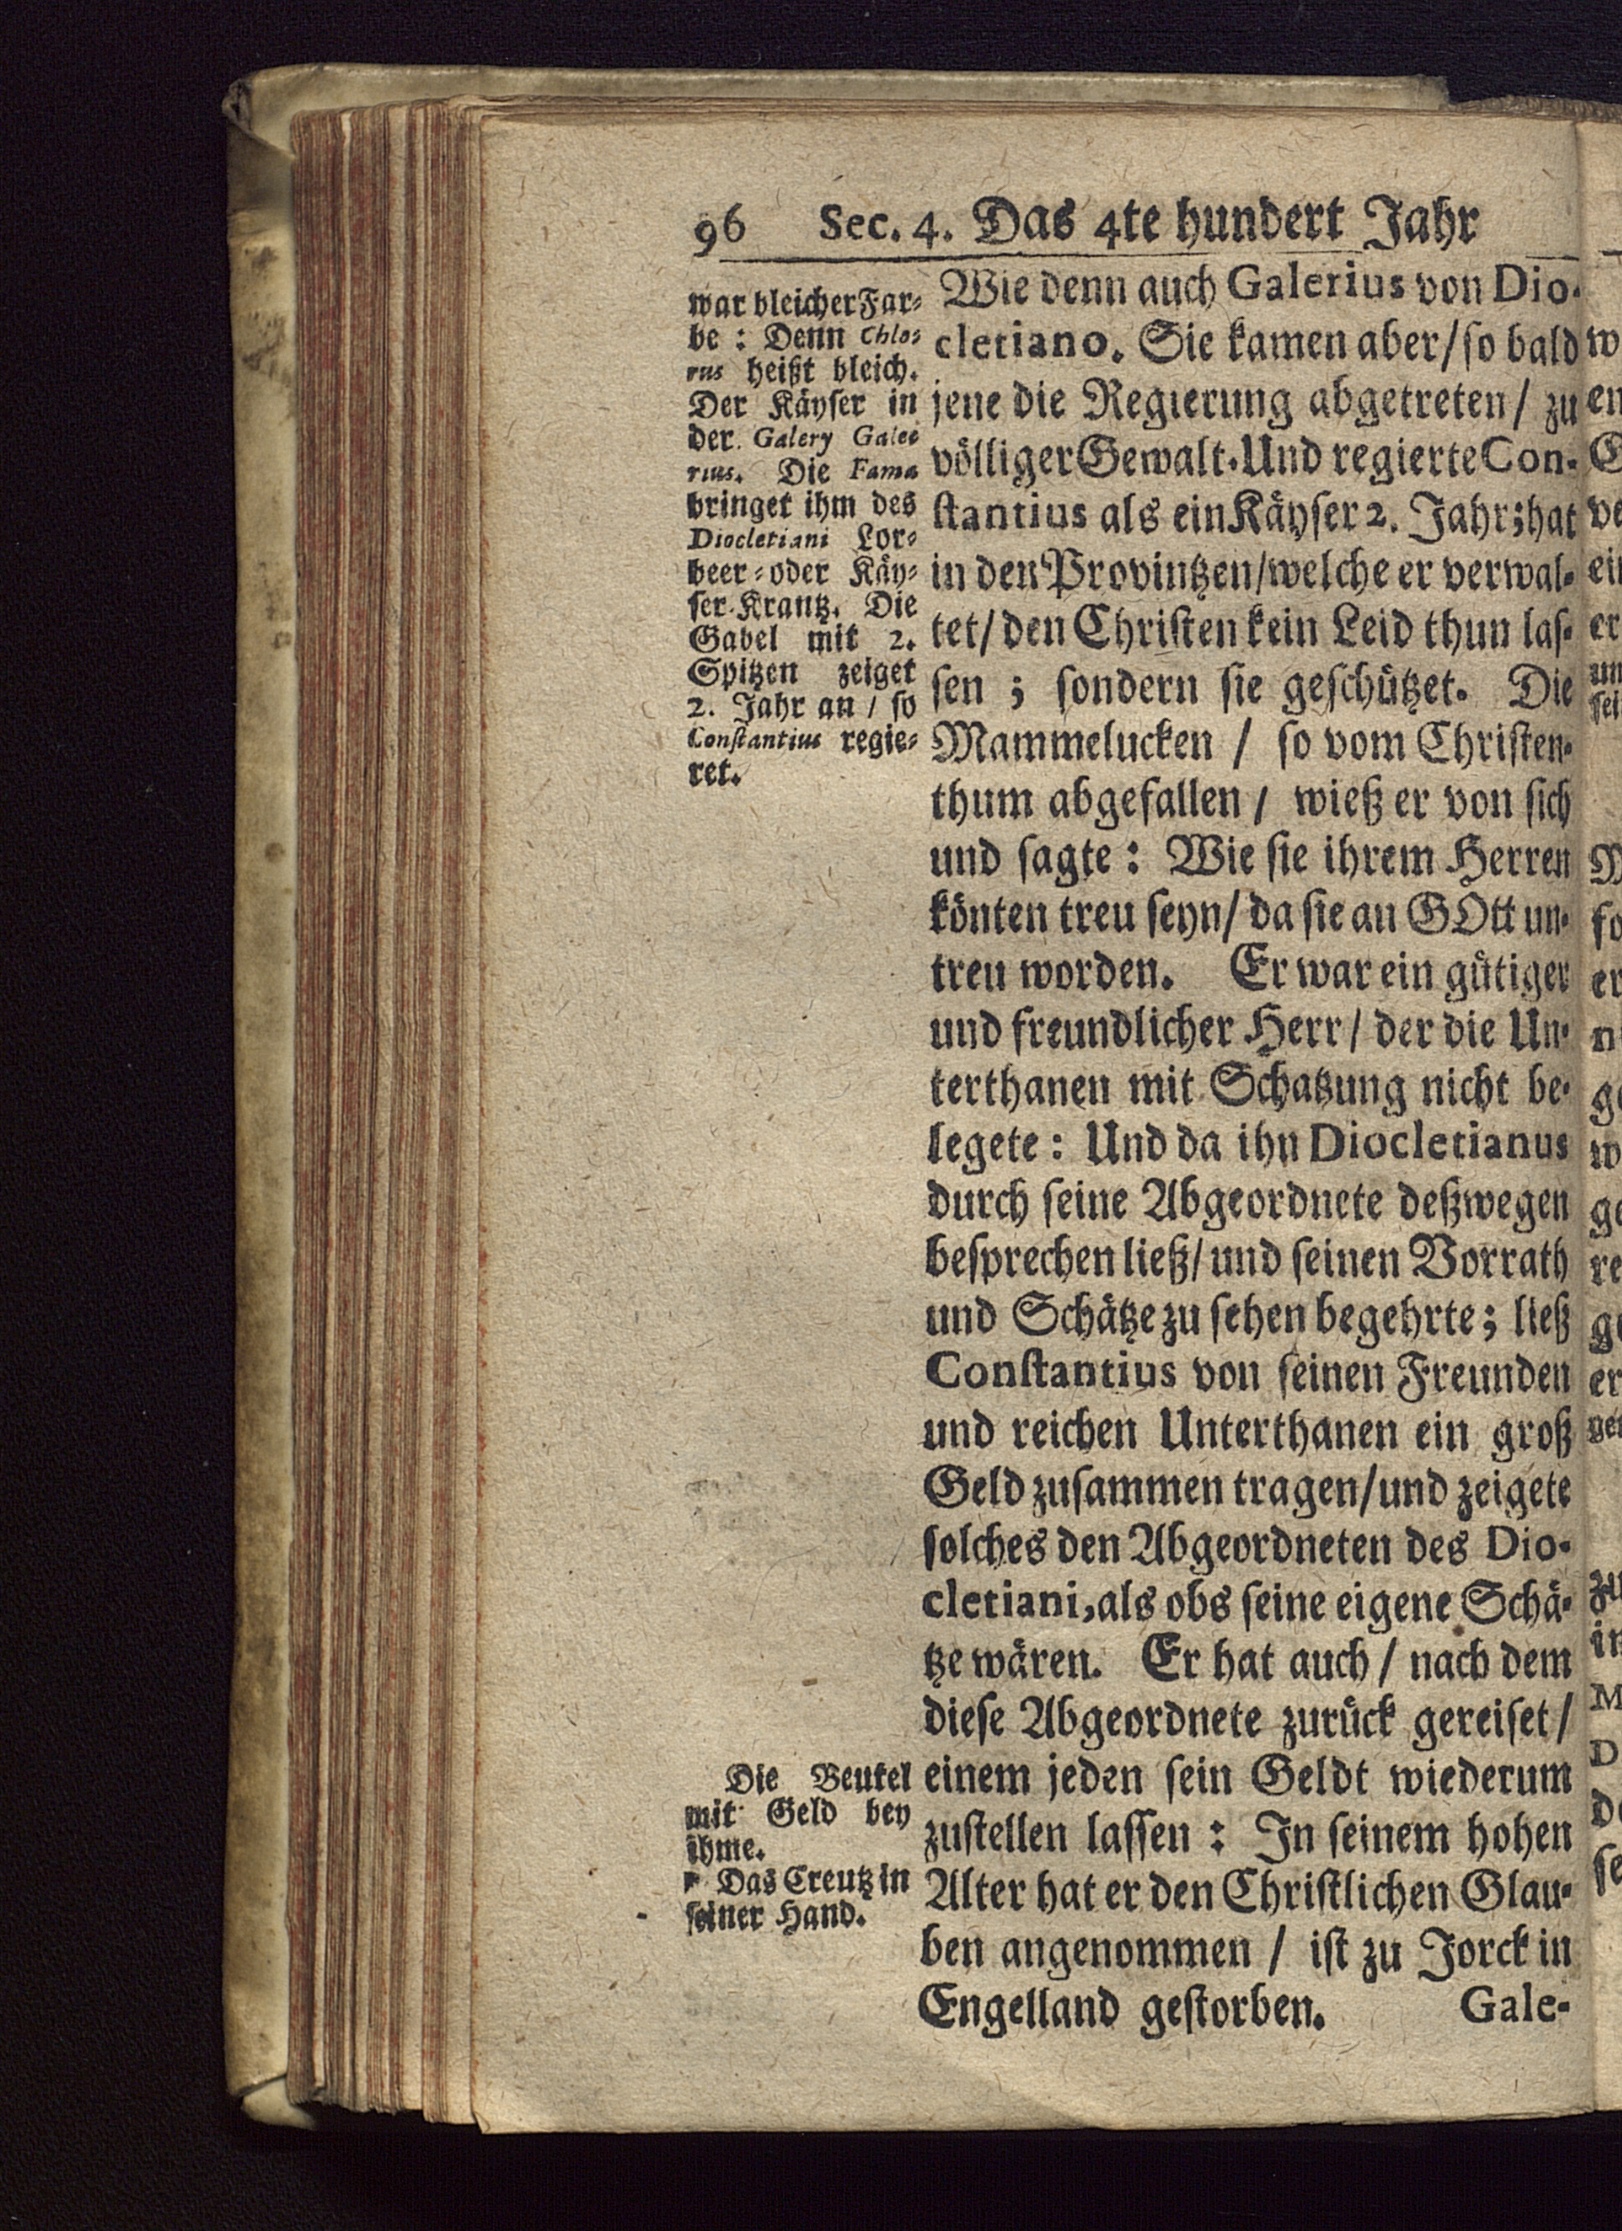 96 Sec. 4. Das 4te hundert Jahr
war bleicher Far⸗
be : Denn Chlo⸗
rus heißt bleich.
Der Käyser in
der Galery Gale⸗
rius. Die Fama
bringet ihm des
Diocletiani Lor⸗
beer⸗oder Käy⸗
ser⸗Krantz. Die
Gabel mit 2.
Spitzen zeiget
2. Jahr an / so
Constantius regie⸗
ret.
Die Beutel
mit Geld bey
ihme.
Das Creutz in
seiner Hand.
Wie denn auch Galerius von Dio-
cletiano. Sie kamen aber/ so bald
jene die Regierung abgetreten / zu
völliger Gewalt. Und regierte Con-
stantius als ein Käyser 2. Jahr; hat
in den Provintzen/welche er verwal-
tet/ den Christen kein Leid thun las-
sen ; sondern sie geschützet. Die
Mammelucken / so vom Christen-
thum abgefallen / wieß er von sich
und sagte : Wie sie ihrem Herren
könten treu seyn/ da sie an GOtt un-
treu worden. Er war ein gütiger
und freundlicher Herr/ der die Un-
terthanen mit Schatzung nicht be-
legete : Und da ihn Diocletianus
durch seine Abgeordnete deßwegen
besprechen ließ/ und seinen Vorrath
und Schätze zu sehen begehrte; ließ
Constantius von seinen Freunden
und reichen Unterthanen ein groß
Geld zusammen tragen/und zeigete
solches den Abgeordneten des Dio-
cletiani, als obs seine eigene Schä-
tze wären. Er hat auch / nach dem
diese Abgeordnete zurück gereiset /
einem jeden sein Geldt wiederum
zustellen lassen : In seinem hohen
Alter hat er den Christlichen Glau-
ben angenommen / ist zu Jorck in
Engelland gestorben. Gale-